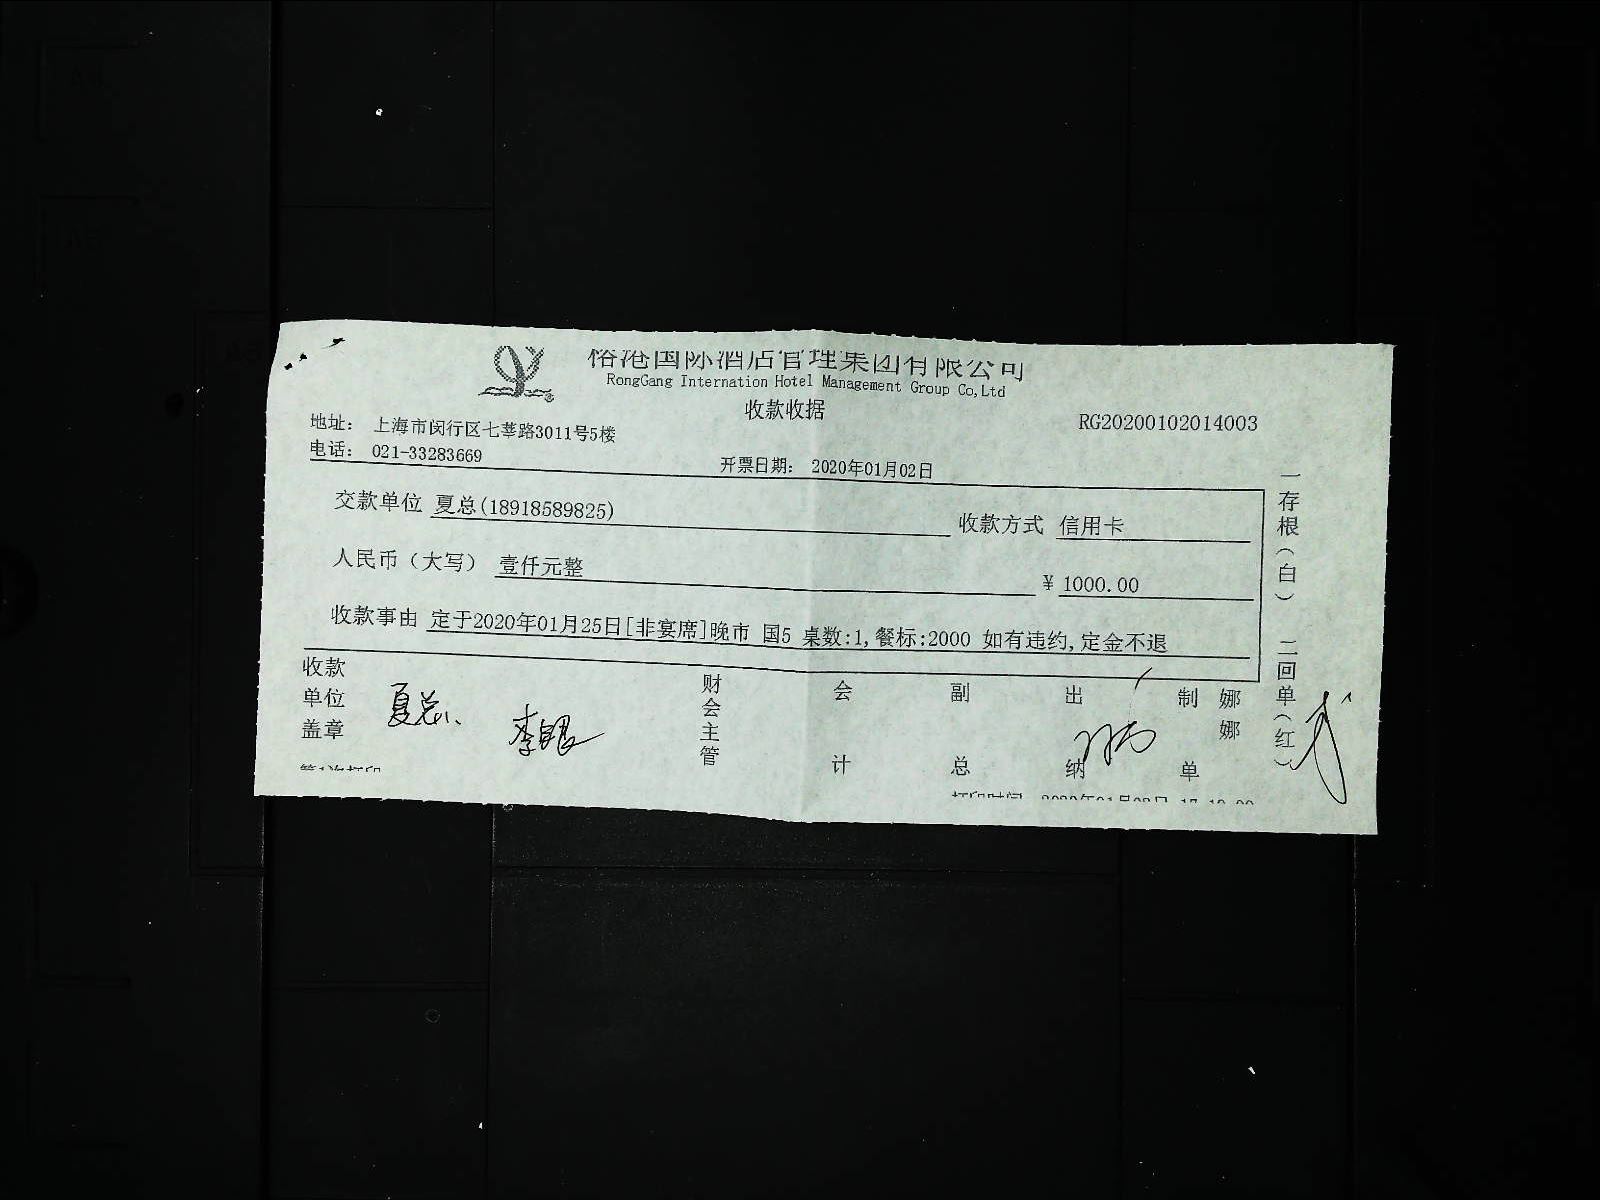 榕港国际酒店管理集团有限公司
RongGang Internation Hotel Management Group Co,Ltd
收款收据
RG20200102014003
地址： 上海市闵行区七莘路3011号5楼
电话： 021-33283669
开票日期： 2020年01月02日
交款单位 夏总(18918589825) 收款方式 信用卡
人民币（大写） 壹仟元整 ¥ 1000.00
收款事由 定于2020年01月25日[非宴席]晚市 国5 桌数:1,餐标:2000 如有违约,定金不退
收款单位盖章 夏总 财会主管 会计 副总 出纳 制单 娜娜
一存根（白） 二回单（红）
第1次打印